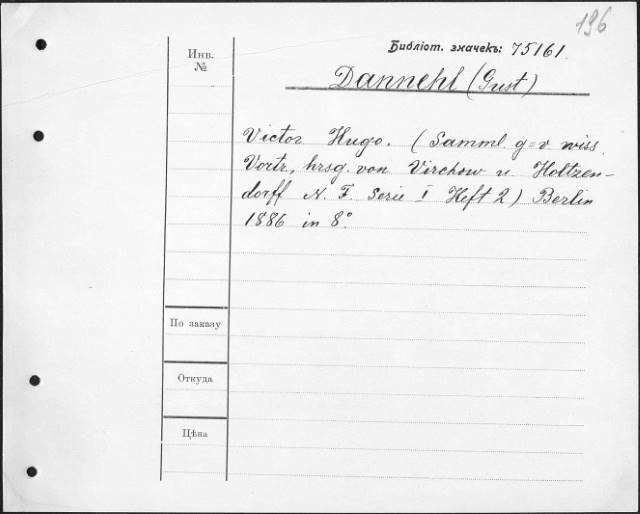 196
Инв.
№
Библіот. значекъ: 75161.
Dannehl (Gust)
Victor Hugo. (Samml. g=v. wiss.
Vortr., hrsg. von Virchow u. Holtzen-
dorff N. F. Serie I Heft 2) Berlin
1886 in 8°.
По заказу
Откуда
Цѣна